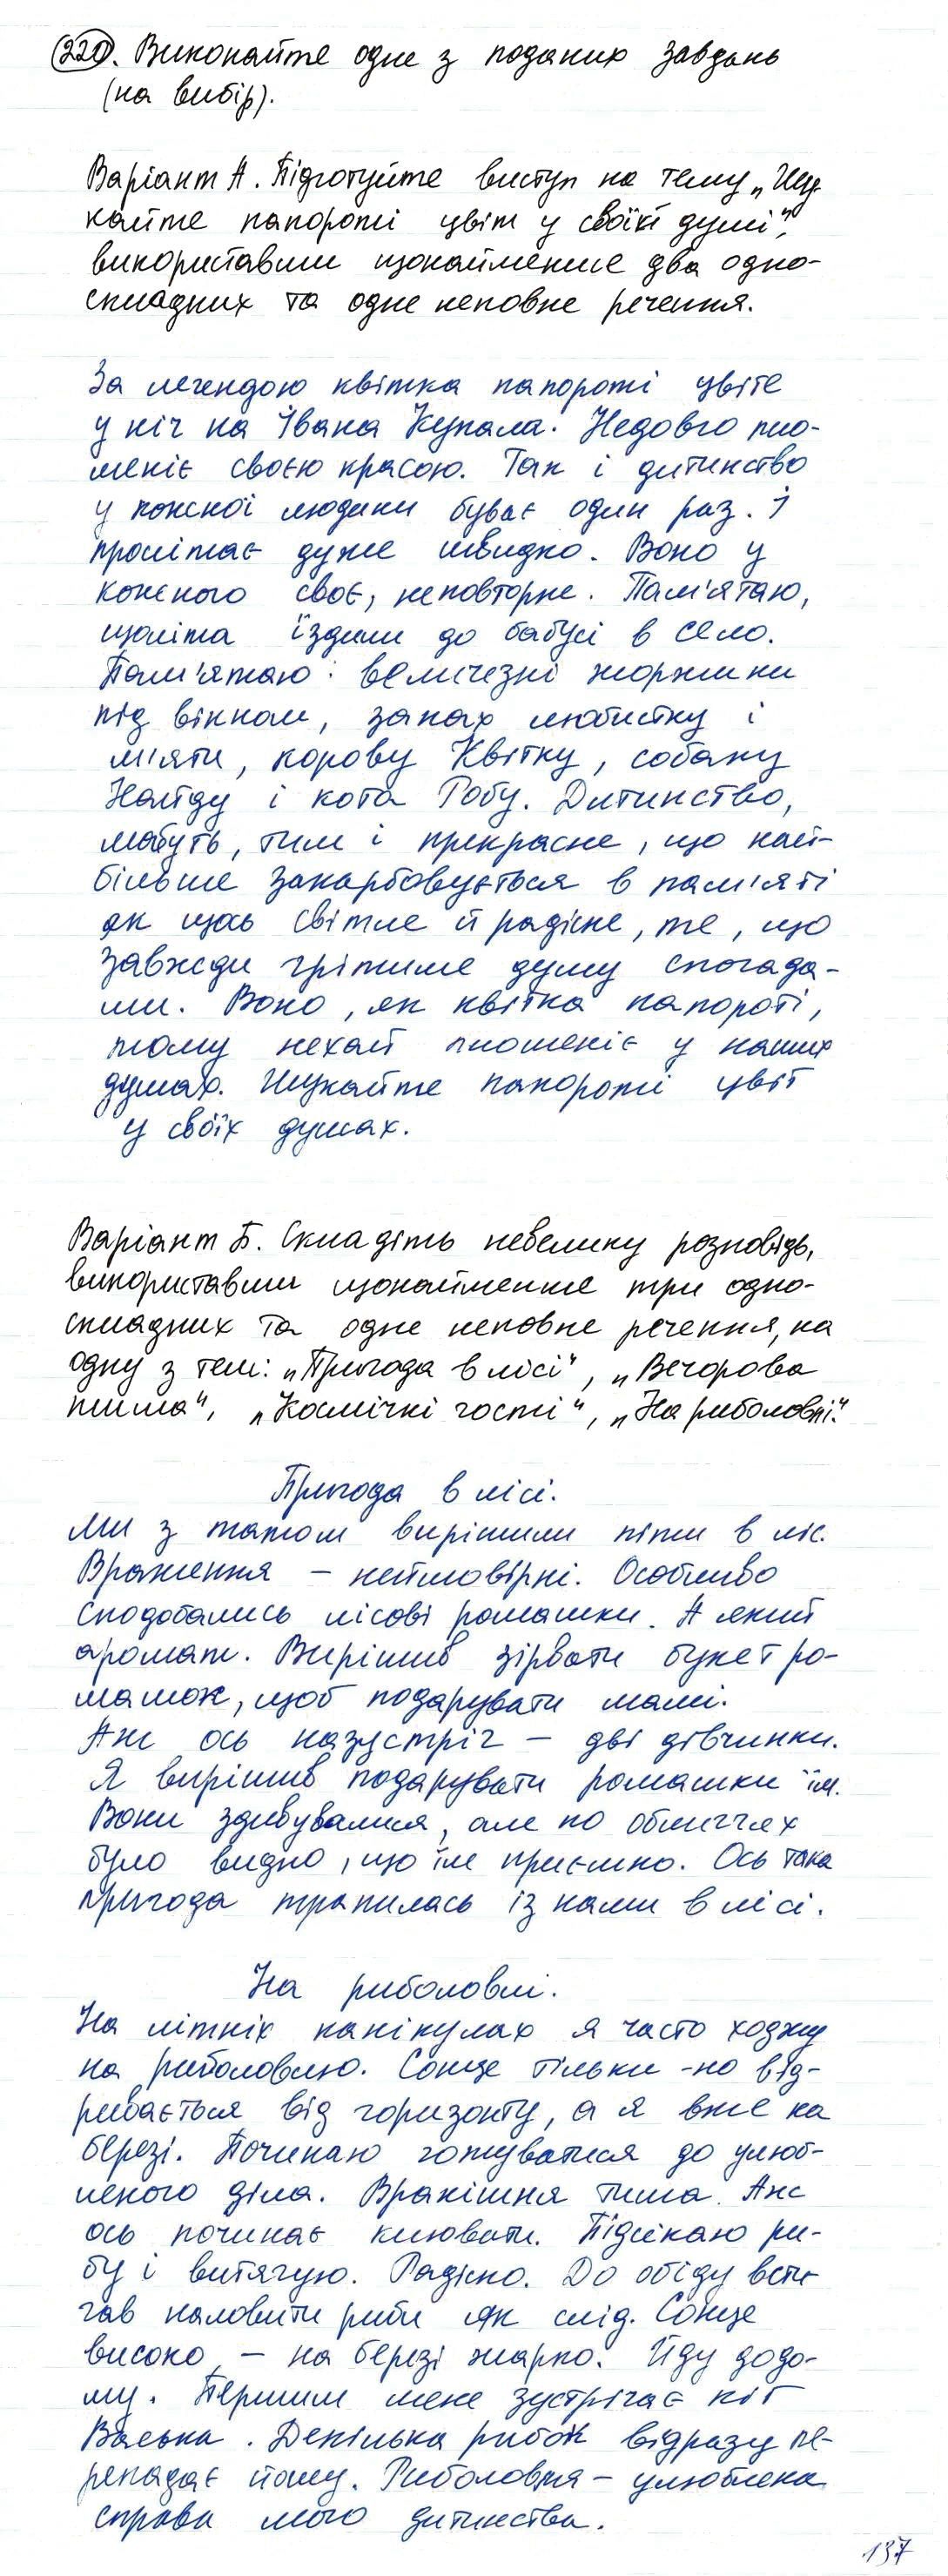 220. Виконайте одне з поданих завдань
(на вибір).
Варіант А. Підготуйте виступ на тему „Шу-
кайте папороті цвіт у своїй душі",
використавши щонайменше два одно-
складних та одне неповне речення.
За легендою квітка папороті цвіте
у ніч на Івана Купала. Недовго пло-
меніє своєю красою. Так і дитинство
у кожної людини буває один раз. І
пролітає дуже швидко. Воно у
кожного своє, неповторне. Пам'ятаю,
щоліта їздили до бабусі в село.
Пам'ятаю: величезні жоржини
під вікном, запах любистку і
м'яти, корову Квітку, собаку
Найду і кота Робу. Дитинство,
мабуть, тим і прекрасне, що най-
більше закарбовується в пам'яті
як щось світле й радісне, те, що
завжди грітиме душу спогада-
ми. Воно, як квітка папороті,
тому нехай пломеніє у наших
душах. Шукайте папороті цвіт
у своїх душах.
Варіант Б. Складіть невелику розповідь,
використавши щонайменше три одно-
складних та одне неповне речення, на
одну з тем: „Пригода в лісі", „Вечорова
тиша", „Космічні гості", „На риболовлі".
Пригода в лісі.
Ми з татом вирішили піти в ліс.
Враження – неймовірні. Особливо
сподобались лісові ромашки. А який
аромат. Вирішив зірвати букет ро-
машок, щоб подарувати мамі.
Аж ось назустріч – дві дівчинки.
Я вирішив подарувати ромашки їм.
Вони здивувалися, але по обличчях
було видно, що їм приємно. Ось така
пригода трапилась із нами в лісі.
На риболовлі.
На літніх канікулах я часто ходжу
на риболовлю. Сонце тільки-но від-
ривається від горизонту, а я вже на
березі. Починаю готуватися до улюб-
леного діла. Вранішня тиша. Аж
ось починає клювати. Підсікаю ри-
бу і витягую. Радісно. До обіду встиг
гав наловити риби як слід. Сонце
високо, – на березі жарко. Йду додо-
му. Першим мене зустрічає кіт
Васька. Декілька рибок відразу пе-
репадає йому. Риболовля – улюблена
справа мого дитинства.
137